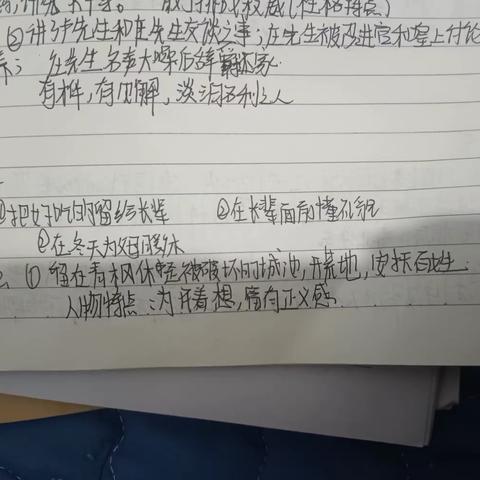 敢于挑战权威(性格特点)
②讲许先生和庄先生交谈之事;庄先生被召进宫和皇上讨论
养; 庄先生名声大噪后辞爵还家.
有才,有见解,淡泊名利之人
①把好吃的留给长辈 ②在长辈面前懂礼貌
③在冬天为父母暖床
2. ① 留在青枫 修整被破坏的城池,开荒地,安抚百姓.
人物特点:为 着想,富有正义感.